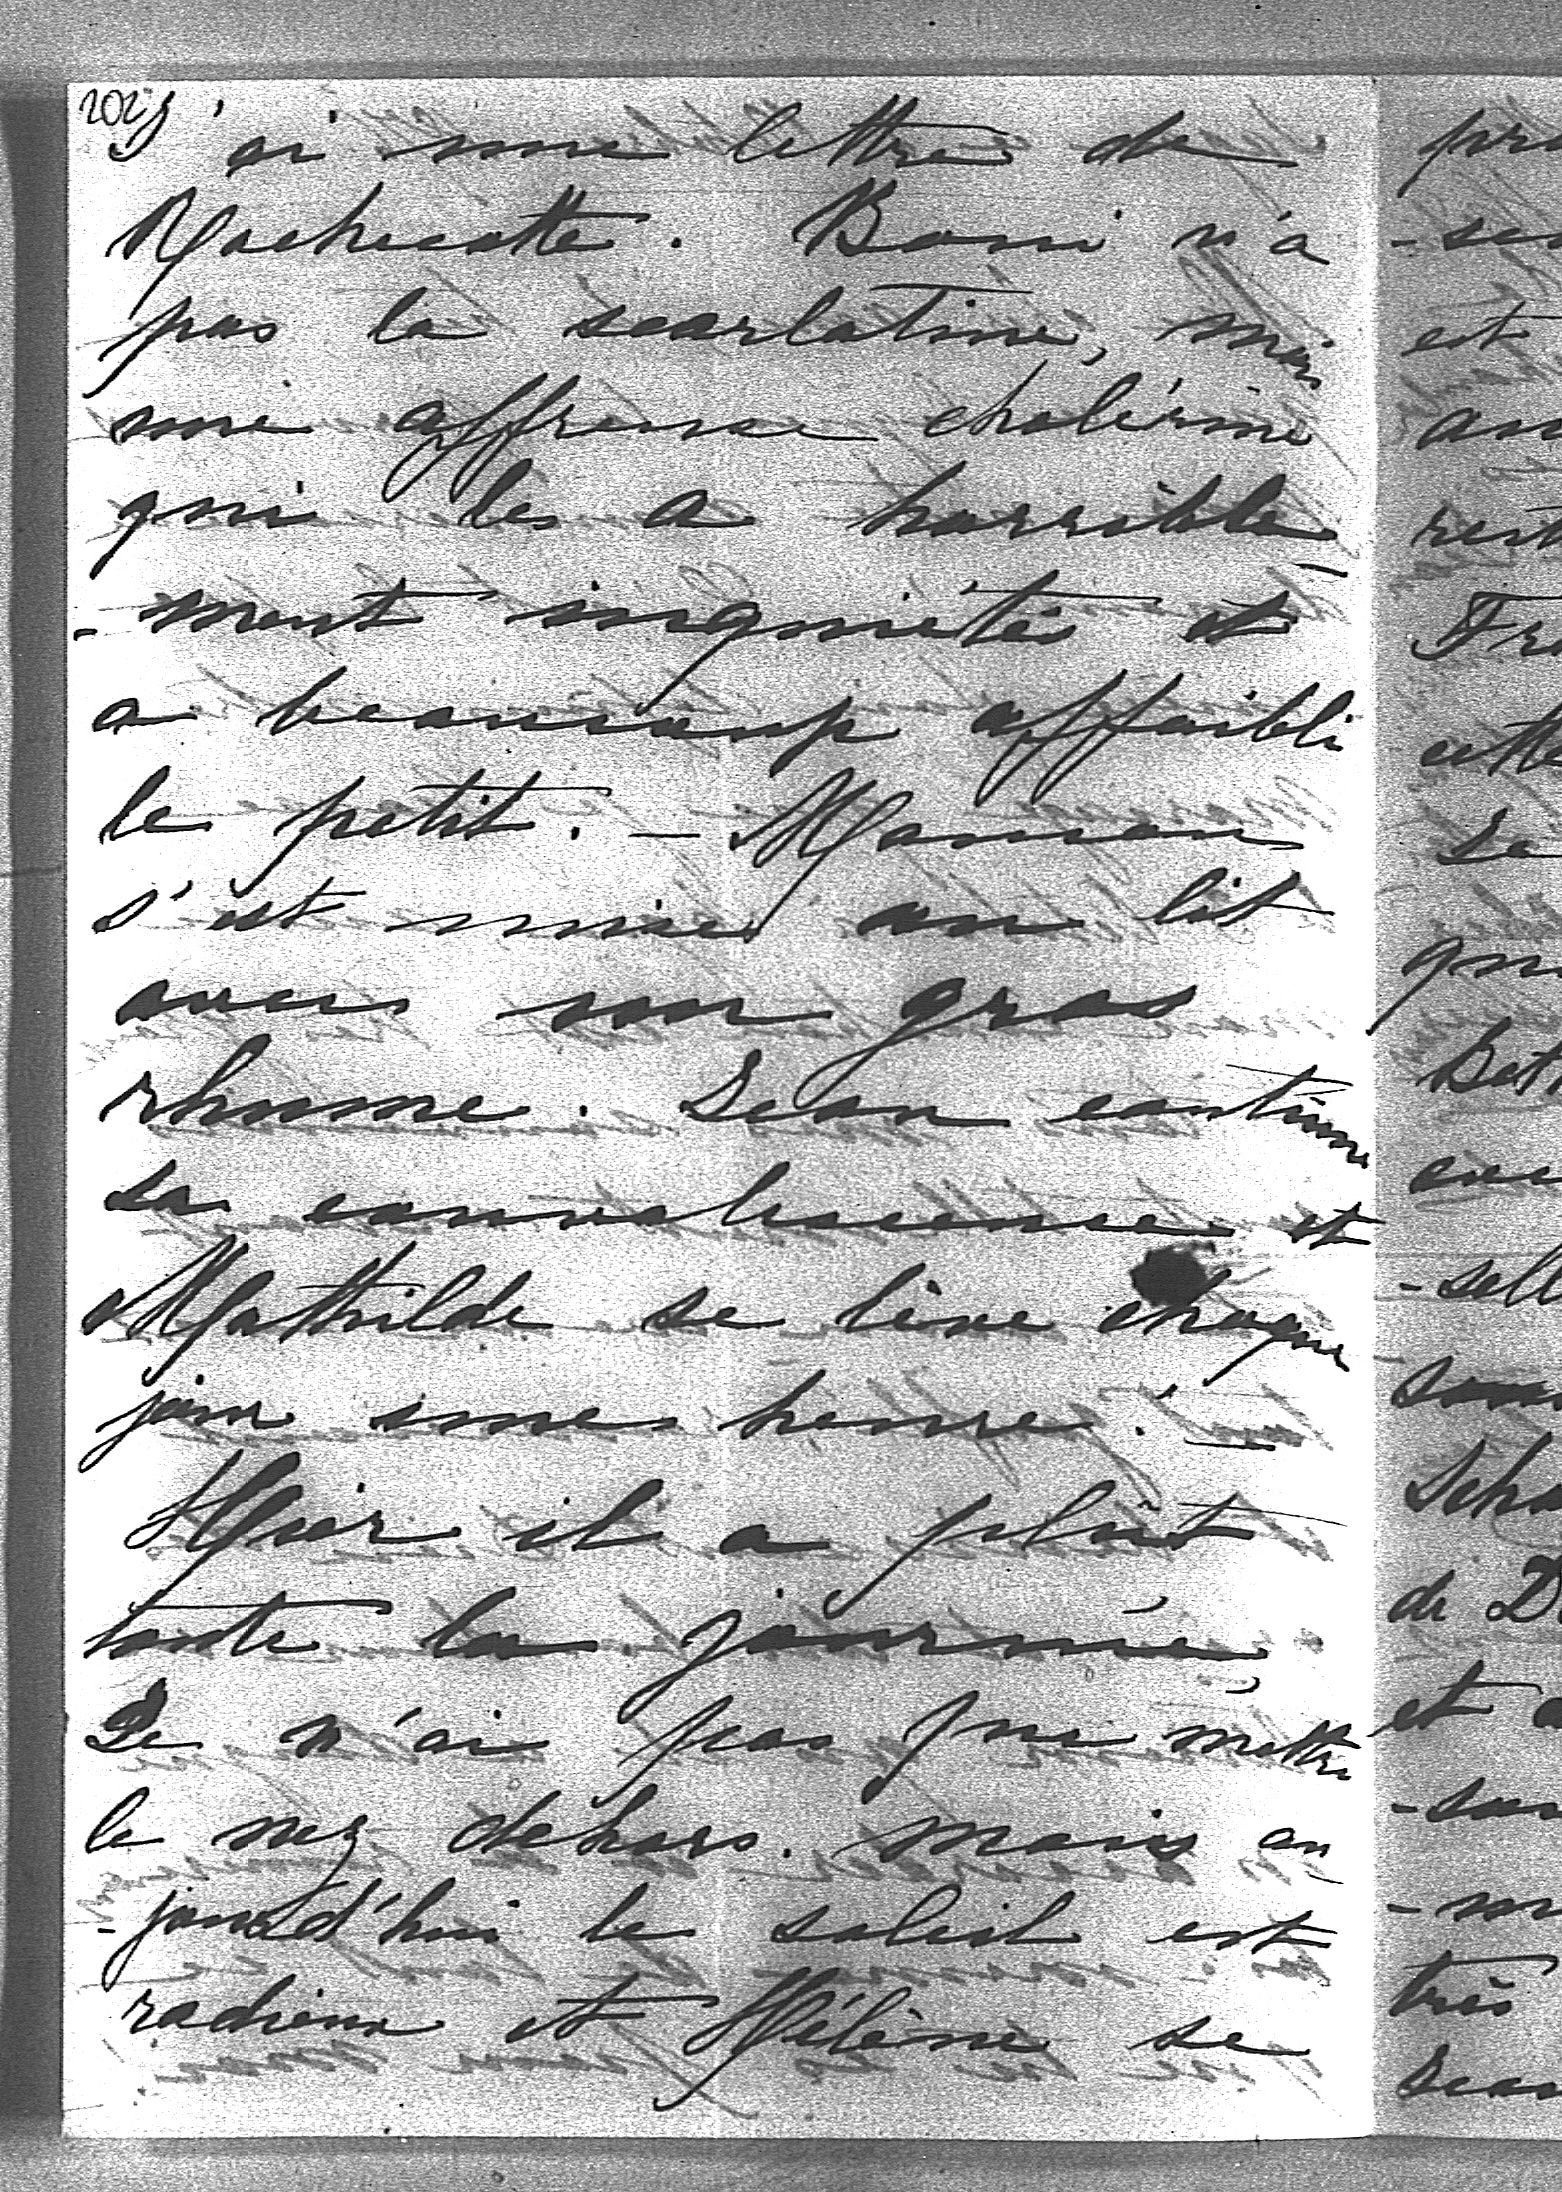 202
J'ai une lettre de
Rochecotte. Boni n'a
pas la scarlatine, mais
une affreuse cholérine
qui les a horrible
-ment inquiétés et
a beaucoup affaibli
le petit. — Maman
s'est mise au lit
avec son gros
rhume. Jean continue
sa convalescence et
Mathilde se lève chaque
jour une heure. —
Hier il a plut
toute la journée,
Je n'ai pas pu mettre
le nez dehors. mais au
-jourd'hui le soleil est
radieux et Hélène se
-sen
est
rest
cette
-sell
de D
et
-sui
très